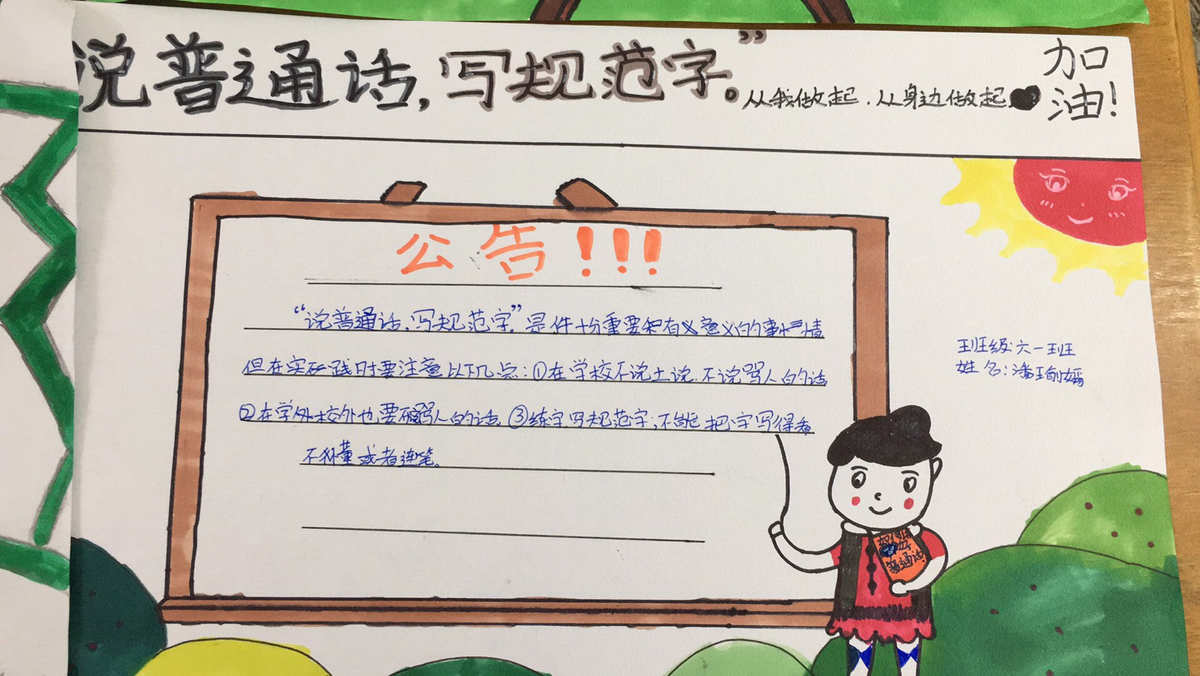 说普通话,写规范字。”
从我做起.从身边做起
加
油!
公告!!!
“说普通话,写规范字”是件十分重要和有义意义的的事情
但在实践时要注意以下几点:①在学校不说土说.不说骂人的话
②在学校外也要不骂人的话.③练字写规范字,不能把字写得看
不懂或者连笔。
班级:六一班
姓名:潘
普通话